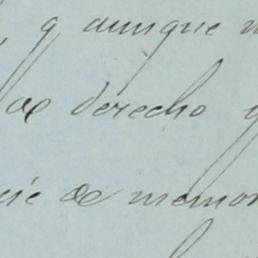 q aunque
de derecho y
de memor